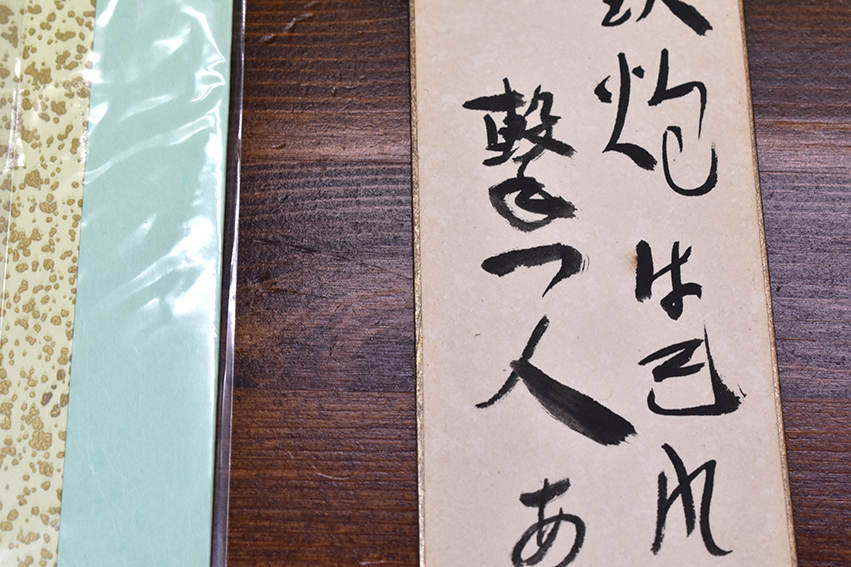 炮は己れ
撃つ人あ